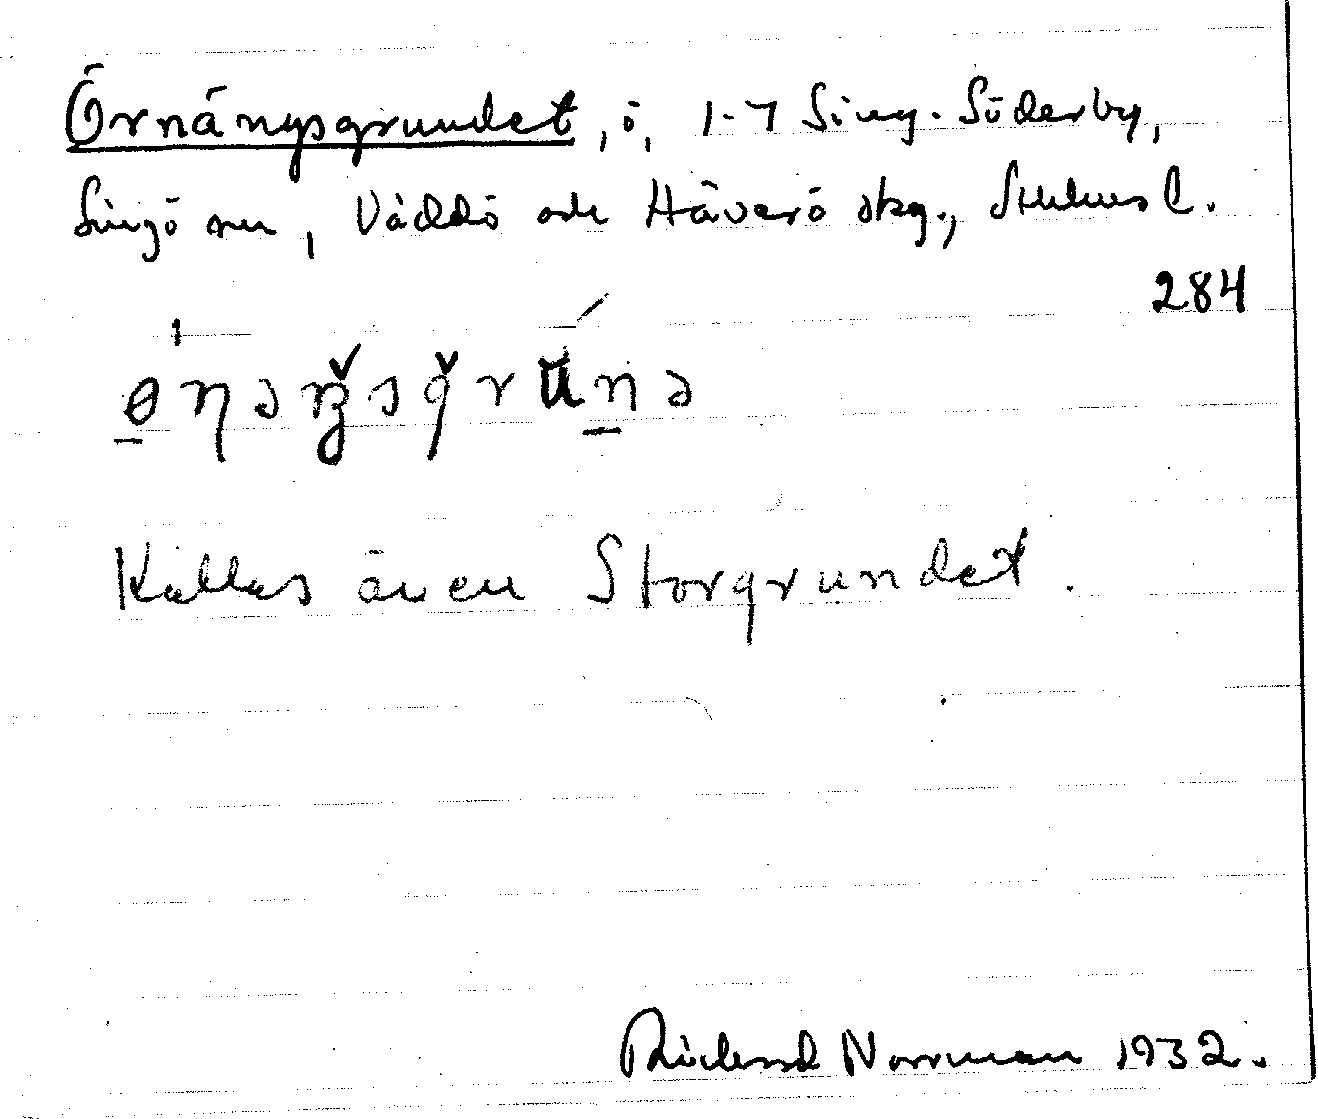 Örnängsgrundet, ö, 1-7 Sing-Söderby,
Singö sn, Väddö och Häverö skg., Sthlms l.
284
Kallas även Storgrundet.
Rickard Norrman 1932.